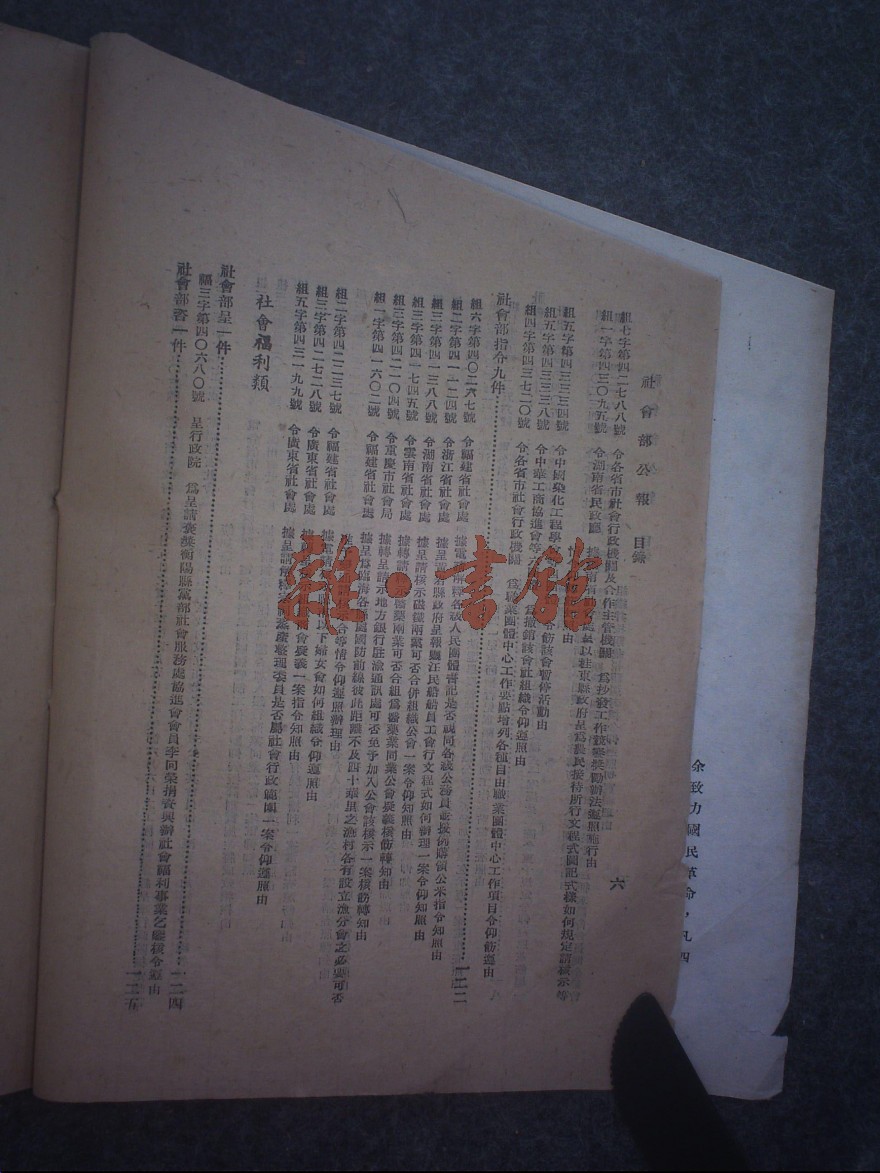 社會部公報 目錄
六
組七字第四二七八八號 令各省市社會行政機關及合作主管機關 為抄發工作競賽獎勵辦法遵照施行由
組一字第四三〇九五號 令湖南省民政廳 以桂東縣政府呈為農民接待所行文程式圖記式樣如何規定請核示等
由
組五字第四三三三四號 令中國染化工程學
組五字第四三三三八號 令中華工商協進會等 為撤銷該會社組織令仰遵照由
飭該會暫停活動由
組四字第四三七二〇號 令各省市社會行政機關 為職業團體中心工作要點增列各種自由職業團體中心工作項目令仰飭遵由
社會部指令九件 一二二
組六字第四〇二六七號 令福建省社會處 據電請 釋各級人民團體書記是否視同各級公務員准援例購領公米指令知照由
組二字第四一一二四號 令浙江省社會處 據呈 縣政府呈報鹽汪民船船員工會行文程式如何辦理一案令仰知照由
組三字第四一三八八號 令湖南省社會處 據呈請核示磁鐵兩業可否合併組織公會一案令仰知照由
組三字第四一七四五號 令雲南省社會處 據轉請 醫藥兩業可否合組為醫藥業同業公會疑義核飭轉知由
組三字第四二一〇四號 令重慶市社會局 據轉呈請示地方銀行駐渝通訊處可否至予加入公會該核示一案核飭轉知由
組一字第四一六〇二號 令福建省社會處 據呈為臨海各縣處國防前線彼此距離不及四十華里之漁村各有設立漁分會之必要可否
合等情令仰遵照辦理由
組二字第四二二三七號 令福建省社會處 據電請 以下婦女會如何組織令仰遵照由
組三字第四二七二八號 令廣東省社會處 會疑義一案指令知照由
組五字第四三一九九號 令廣東省社會處 據呈請解釋 整理委員是否屬社會行政範圍一案令仰遵照由
社會福利類
社會部呈一件 一二四
福三字第四〇六八〇號 呈行政院 為呈請褒獎衡陽縣黨部社會服務處協進會會員李同榮捐資興辦社會福利事業乞鑒核令遵由
社會部咨一件 一二五
余致力國民革命，凡四
雜·書館